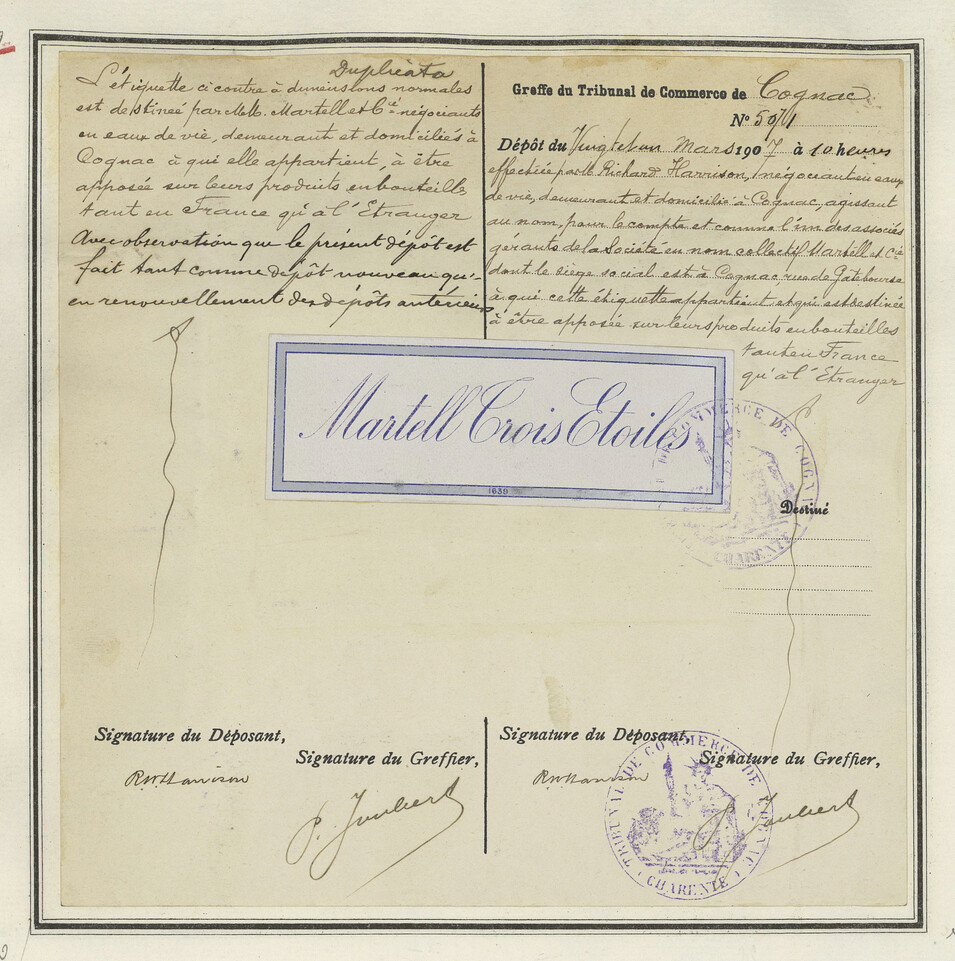 Duplicata
L'étiquette ci contre à dimensions normales
est destinée par M.M. Martell et Cie négociants
en eaux de vie, demeurant et domiciliés à
Cognac à qui elle appartient, à être
apposée sur leurs produits en bouteilles
tant en France qu'à l'Etranger
Avec observation que le présent dépôt est
fait tant comme dépôt nouveau qu'-
en renouvellement des dépôts antérieurs
Greffe du Tribunal de Commerce de Cognac
No 5971
Dépôt du Vingt et un Mars 1907 à 10 heures
effectué par M. Richard Harrison, négociant en eaux
de vie, demeurant et domicilié à Cognac, agissant
au nom, pour le compte et comme l'un des associés
gérants de la Société en nom collectif Martell et Cie
dont le siège social est à Cognac, rue de Gatebourse
à qui cette étiquette appartient et qui est destinée
à être apposée sur leurs produits en bouteilles
tant en France
qu'à l'Etranger
Martell Trois Etoiles
1639
DE COMMERCE DE COGNAC
CHARENTE
Destiné
Signature du Déposant,
Signature du Greffier,
RWHarrison
P. Joubert
Signature du Déposant,
Signature du Greffier,
RWHarrison
P. Joubert
TRIBUNAL DE COMMERCE DE COGNAC
CHARENTE